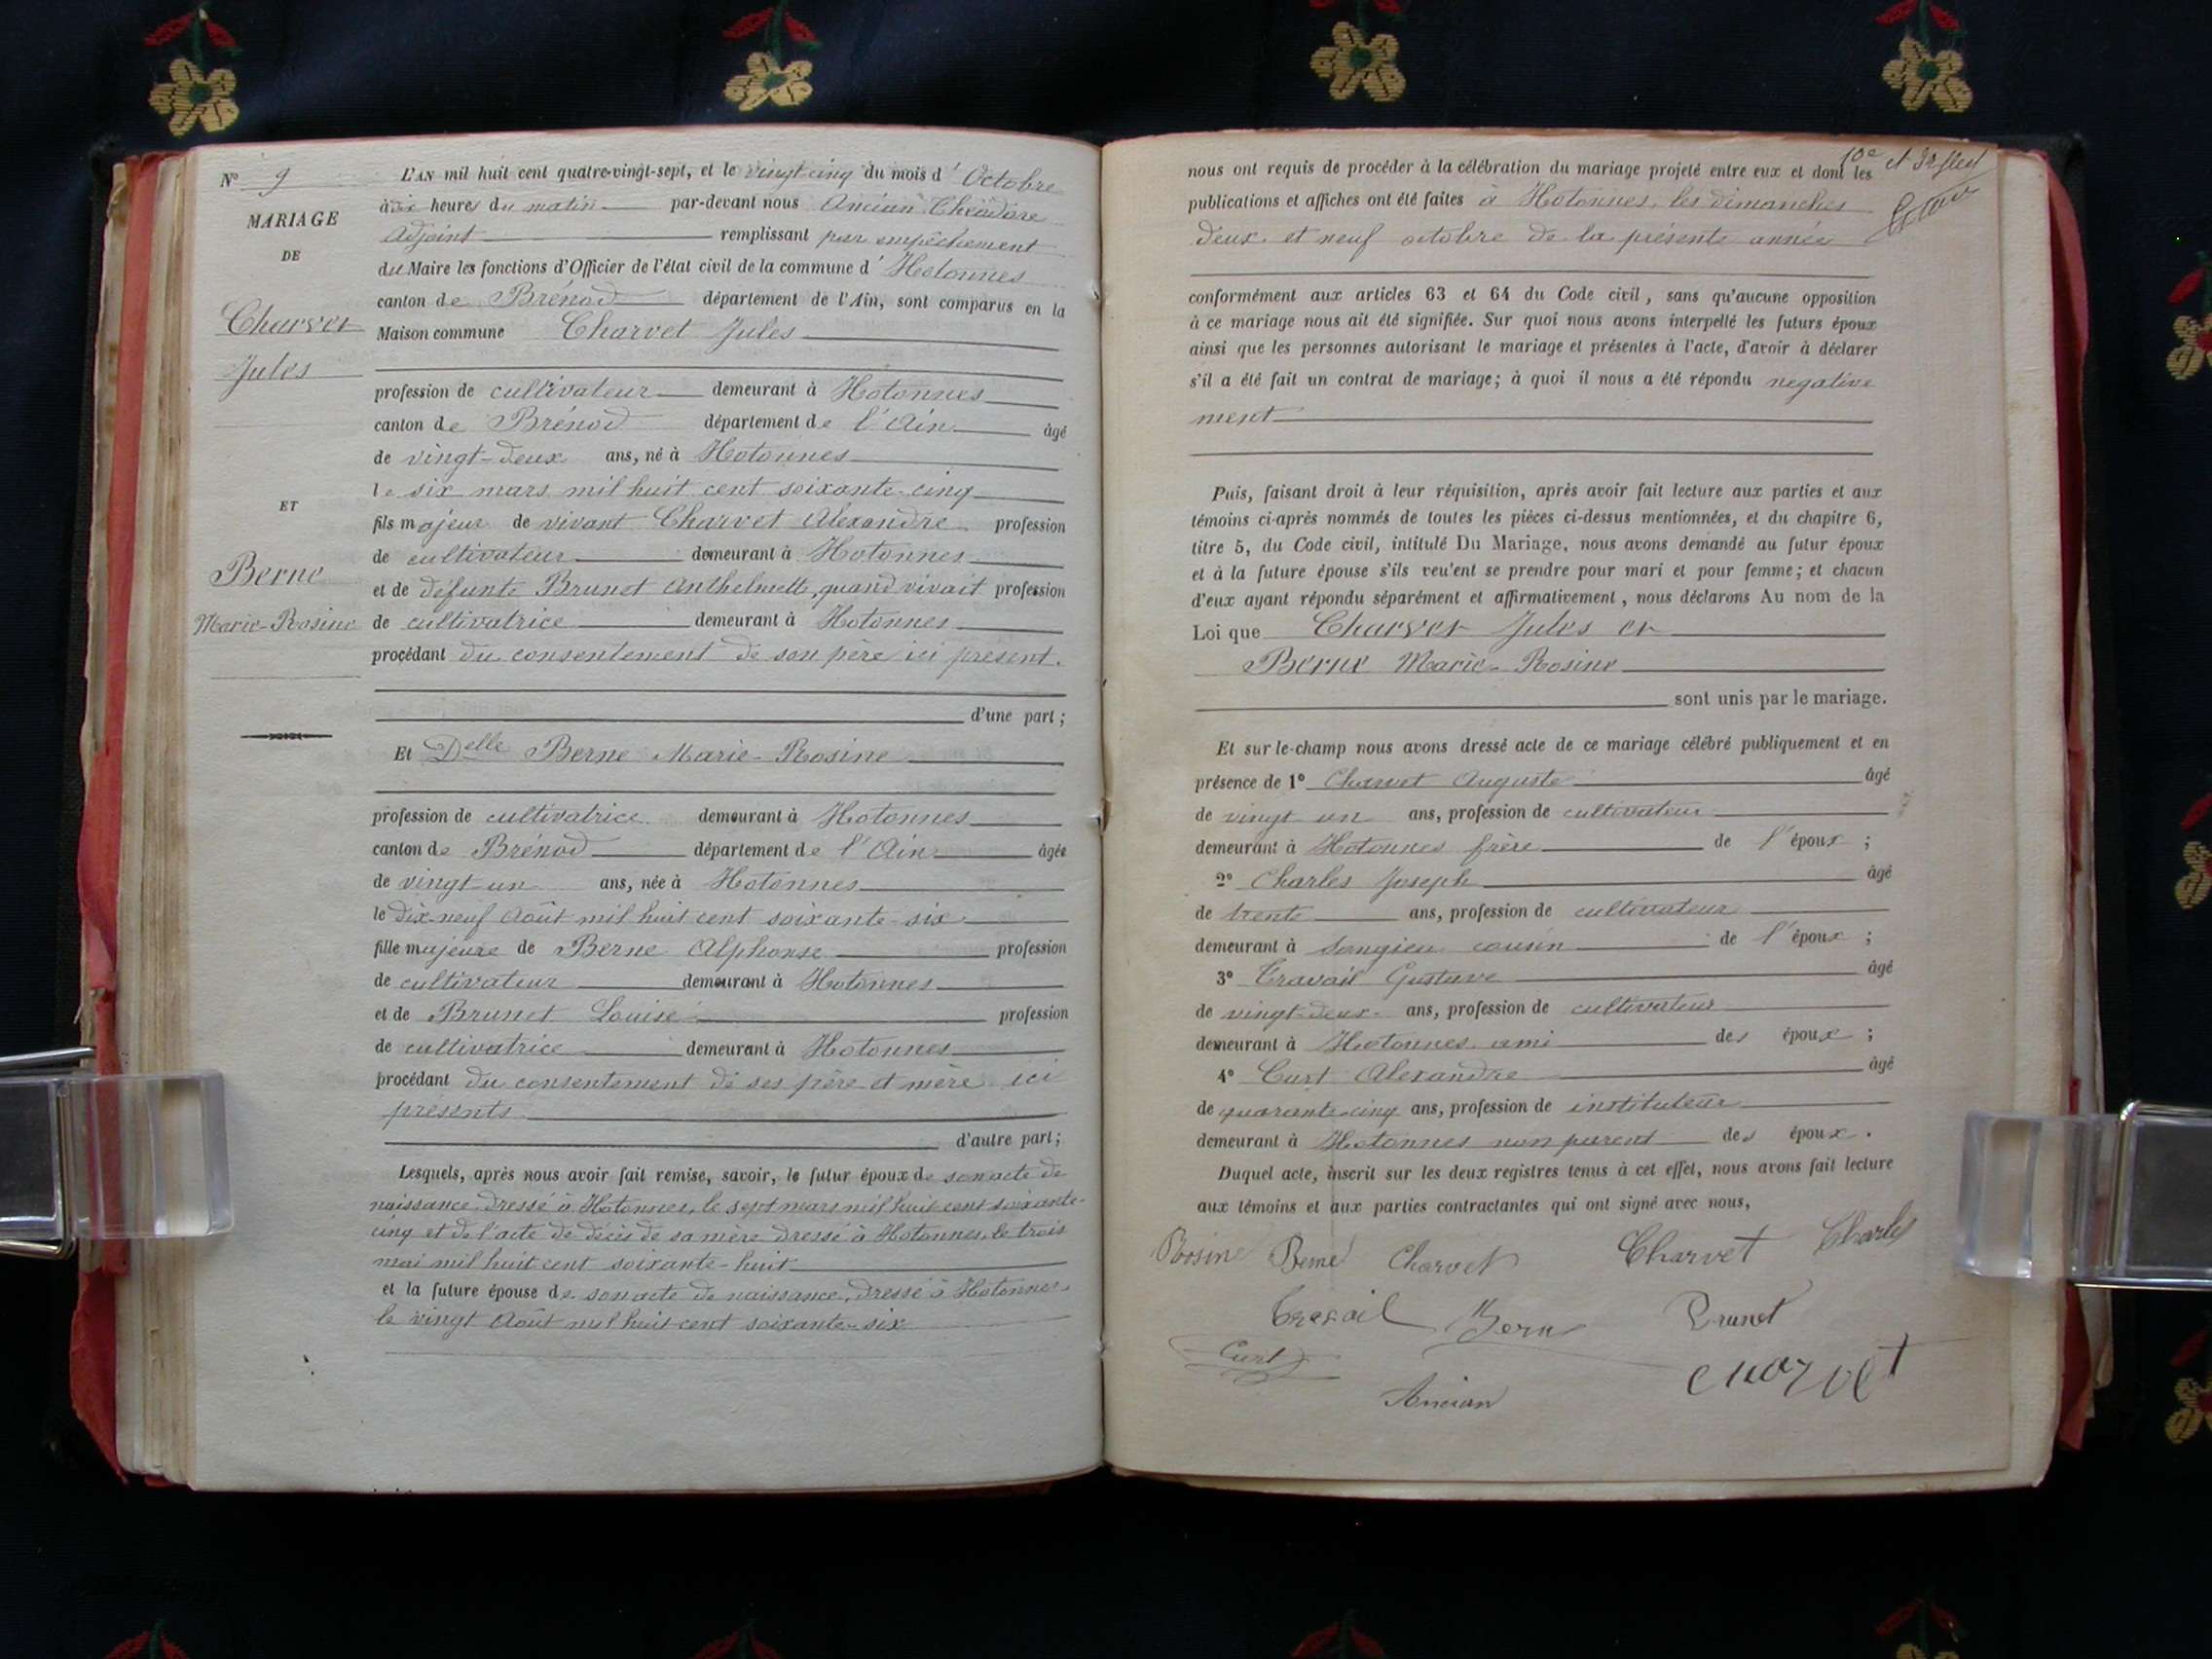 N° 9
MARIAGE
DE
Charvet
Jules
ET
Berne
Marie-Rosine
L'AN mil huit cent quatre-vingt-sept, et le vingt cinq du mois d'Octobre
à heures du matin par-devant nous Ancian Théodore
Adjoint remplissant par empêchement
du Maire les fonctions d'Officier de l'état civil de la commune d'Hotonnes
canton de Brénod département de l'Ain, sont comparus en la
Maison commune Charvet Jules
profession de cultivateur demeurant à Hotonnes
canton de Brénod département de l'Ain âgé
de vingt-deux ans, né à Hotonnes
le six mars mil huit cent soixante-cinq
fils majeur de vivant Charvet Alexandre profession
de cultivateur demeurant à Hotonnes
et de défunte Brunet Anthelmette, quand vivait profession
de cultivatrice demeurant à Hotonnes
procédant du consentement de son père ici présent.
d'une part ;
Et Delle Berne Marie-Rosine
profession de cultivatrice demeurant à Hotonnes
canton de Brénod département de l'Ain âgée
de vingt-un ans, née à Hotonnes
le dix-neuf Août mil huit cent soixante-six
fille majeure de Berne Alphonse profession
de cultivateur demeurant à Hotonnes
et de Brunet Louise profession
de cultivatrice demeurant à Hotonnes
procédant du consentement de ses père et mère ici
présents
d'autre part ;
Lesquels, après nous avoir fait remise, savoir, le futur époux de son acte de
naissance dressé à Hotonnes, le sept mars mil huit cent soixante-
cinq et de l'acte de décès de sa mère dressé à Hotonnes, le trois
mai mil huit cent soixante-huit
et la future épouse de son acte de naissance, dressé à Hotonnes
le vingt Août mil huit cent soixante-six
nous ont requis de procéder à la célébration du mariage projeté entre eux et dont les
publications et affiches ont été faites à Hotonnes, les dimanches
deux et neuf octobre de la présente année
conformément aux articles 63 et 64 du Code civil, sans qu'aucune opposition
à ce mariage nous ait été signifiée. Sur quoi nous avons interpellé les futurs époux
ainsi que les personnes autorisant le mariage et présentes à l'acte, d'avoir à déclarer
s'il a été fait un contrat de mariage ; à quoi il nous a été répondu negative
ment
Puis, faisant droit à leur réquisition, après avoir fait lecture aux parties et aux
témoins ci-après nommés de toutes les pièces ci-dessus mentionnées, et du chapitre 6,
titre 5, du Code civil, intitulé Du Mariage, nous avons demandé au futur époux
et à la future épouse s'ils veu'ent se prendre pour mari et pour femme ; et chacun
d'eux ayant répondu séparément et affirmativement, nous déclarons Au nom de la
Loi que Charvet Jules et
Berne Marie-Rosine
sont unis par le mariage.
Et sur le-champ nous avons dressé acte de ce mariage célébré publiquement et en
présence de 1° Charvet Auguste âgé
de vingt un ans, profession de cultivateur
demeurant à Hotonnes frère de l'époux ;
2° Charles Joseph âgé
de trente ans, profession de cultivateur
demeurant à Songieu cousin de l'époux ;
3° Travail Gustave âgé
de vingt-deux ans, profession de cultivateur
demeurant à Hotonnes ami des époux ;
4° Curt Alexandre âgé
de quarante-cinq ans, profession de instituteur
demeurant à Hotonnes non parent des époux.
Duquel acte, inscrit sur les deux registres tenus à cet effet, nous avons fait lecture
aux témoins et aux parties contractantes qui ont signé avec nous,
Rosine Berne Charvet Charvet Charles
Travail Berne Brunet
Curt Charvet
Ancian